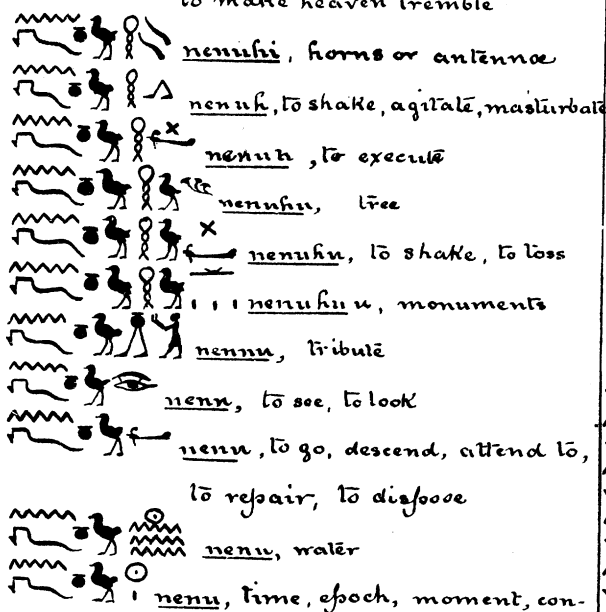 to make heaven tremble
nenuhi, horns or antennæ
nenuh, to shake, agitate, masturbate
nenuh, to execute
nenuhu, tree
nenuhu, to shake, to toss
nenuhu u, monuments
nennu, tribute
nenn, to see, to look
nenu, to go, descend, attend to,
to repair, to dispose
nenu, water
nenu, time, epoch, moment, con-